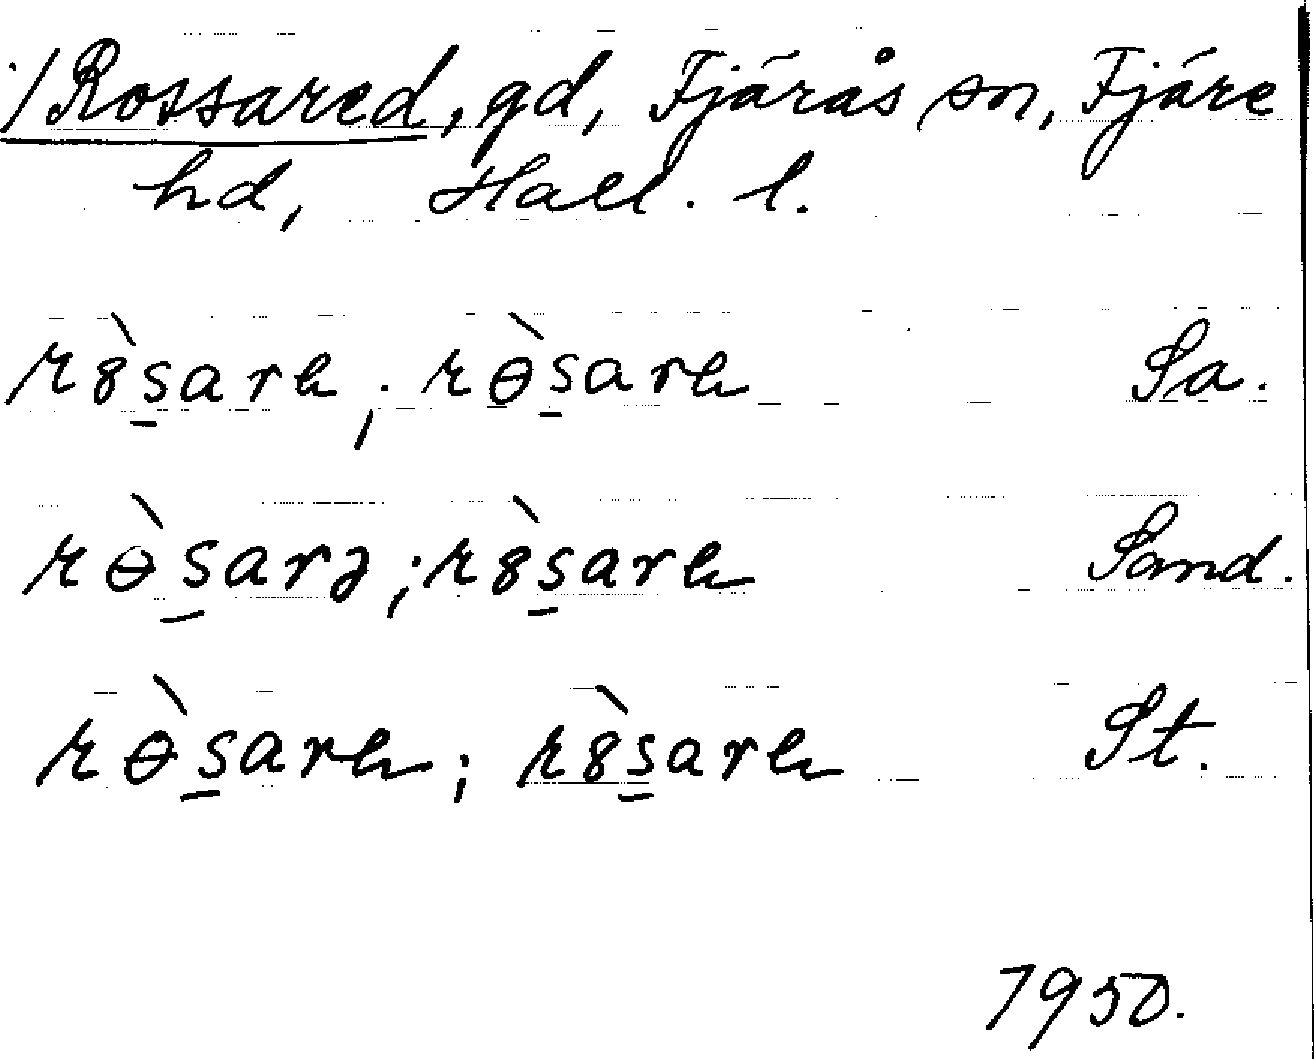 :/Rossared, gd, Fjärås sn, Fjäre
hd, Hall. l.
r8̀s̲are; rɵ̀s̲are Sa.
rɵ̀s̲arə; r8̀s̲are Sand.
rɵ̀s̲are; r8̀s̲are St.
1950.